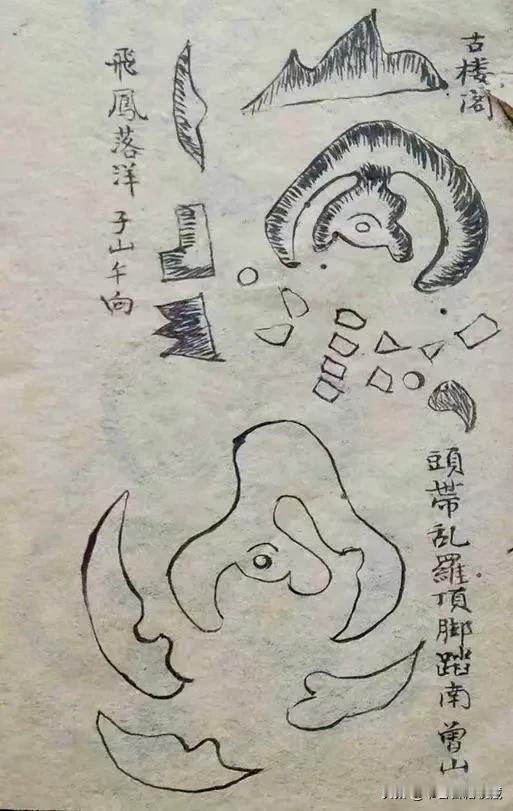 古楼阁
飛鳳落洋 子山午向
頭帶乱羅頂脚踏南曾山